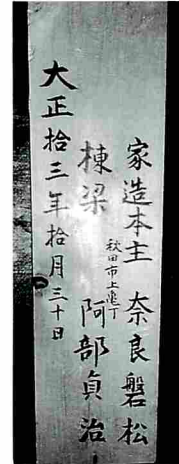 家造本主 奈良磐松
秋田市上亀丁
棟梁 阿部貞治
大正拾三年拾月三十日